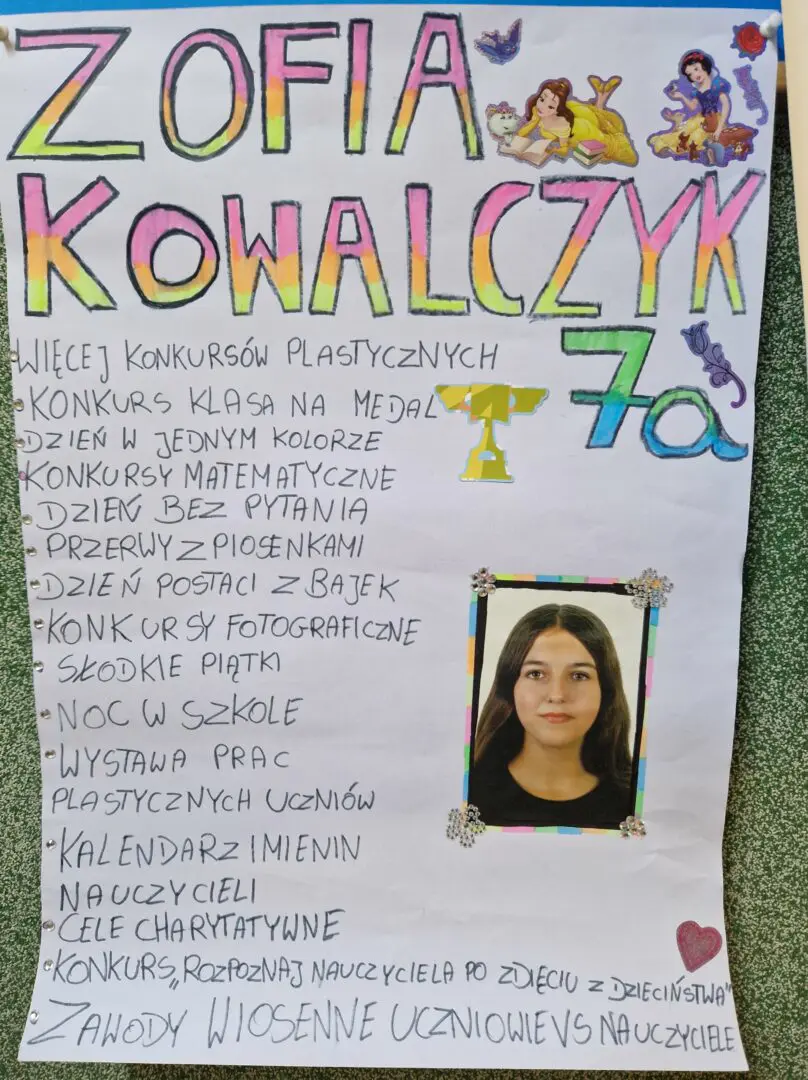 ZOFIA
KOWALCZYK
7a
WIĘCEJ KONKURSÓW PLASTYCZNYCH
KONKURS KLASA NA MEDAL
DZIEŃ W JEDNYM KOLORZE
KONKURSY MATEMATYCZNE
DZIEŃ BEZ PYTANIA
PRZERWY Z PIOSENKAMI
DZIEŃ POSTACI Z BAJEK
KONKURSY FOTOGRAFICZNE
SŁODKIE PIĄTKI
NOC W SZKOLE
WYSTAWA PRAC
PLASTYCZNYCH UCZNIÓW
KALENDARZ IMIENIN
NAUCZYCIELI
CELE CHARYTATYWNE
KONKURS „ROZPOZNAJ NAUCZYCIELA PO ZDIĘCIU Z DZIECIŃSTWA"
ZAWODY WIOSENNE UCZNIOWIE VS NAUCZYCIELE